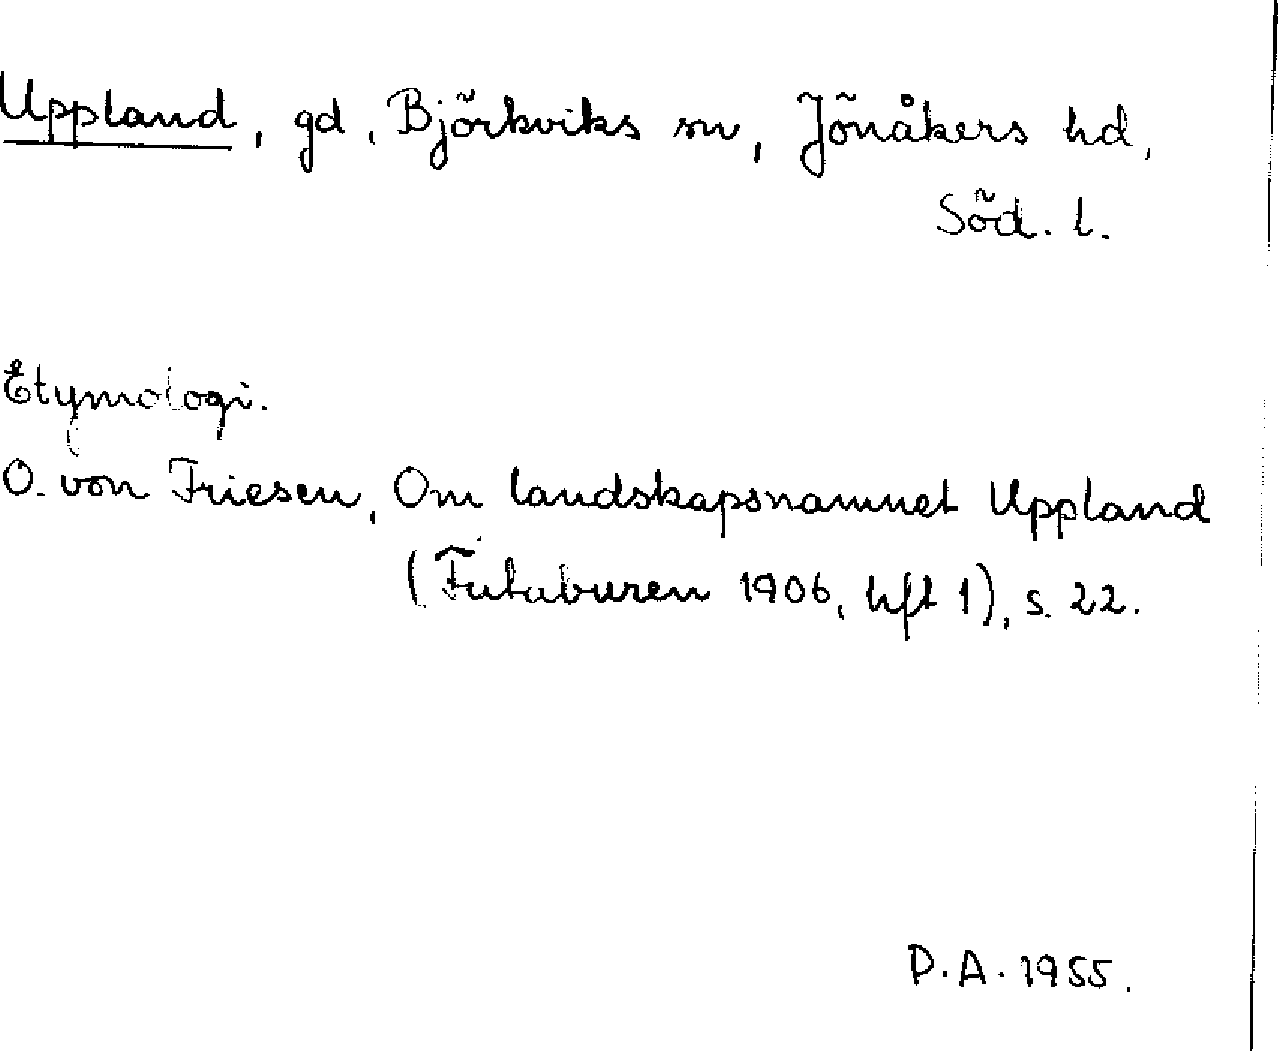 Uppland, gd, Björkviks sn, Jönåkers hd,
Söd. l.
Etymologi.
O. von Friesen, Om landskapsnamnet Uppland
(Fataburen 1906, hft 1), s. 22.
D.A. 1955.